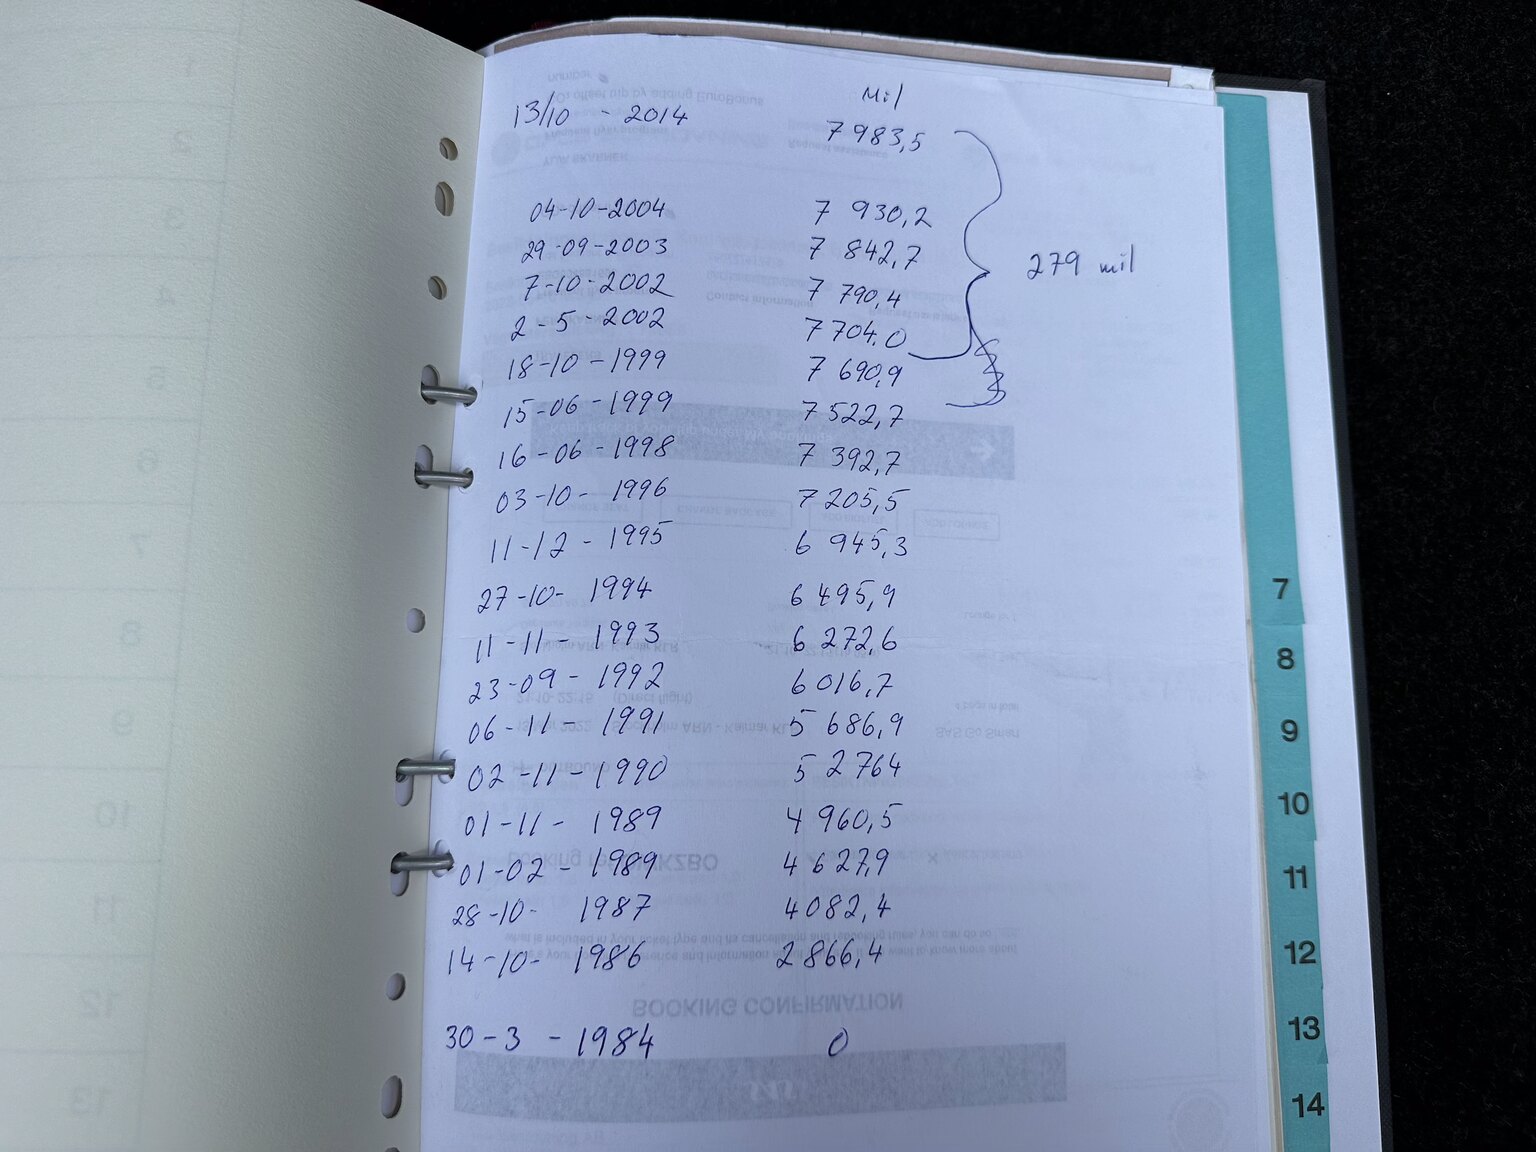 Mil
13/10 - 2014 7 983,5
04-10-2004 7 930,2
29-09-2003 7 842,7
279 mil
7-10-2002 7 790,4
2-5-2002 7 704,0
18-10-1999 7 690,9
15-06-1999 7 522,7
16-06-1998 7 392,7
03-10-1996 7 205,5
11-12-1995 6 945,3
27-10-1994 6 495,9
11-11-1993 6 272,6
23-09-1992 6 016,7
06-11-1991 5 686,9
02-11-1990 5 2764
01-11-1989 4 960,5
01-02-1989 4 627,9
28-10-1987 4 082,4
14-10-1986 2 866,4
30-3-1984 0
BOOKING CONFIRMATION
SAS
7
8
9
10
11
12
13
14